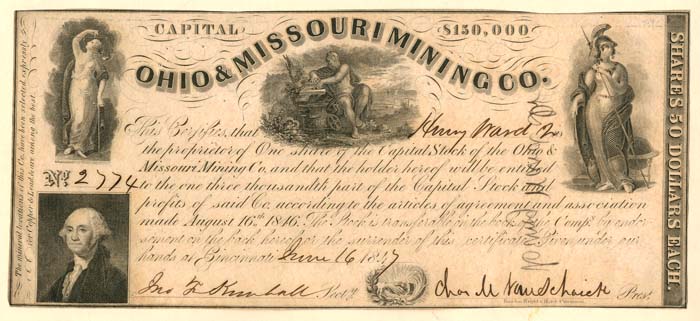 CAPITAL $150,000
OHIO & MISSOURI MINING CO.
This Certifies, that Henry Ward
the proprietor of One share of the Capital Stock of the Ohio &
Missouri Mining Co. and that the holder hereof will be entitled
to the one three thousandth part of the Capital Stock and
profits of said Co. according to the articles of agreement and association
made August 16th 1846. The Stock is transferable on the books of the Compy. by endor-
sement on the back hereof or the surrender of this certificate. Given under our
hands at Cincinnati June 16 1847
Jno F Kimball Secty.
Chas M Van Schaick Prest.
No 2774
SHARES 50 DOLLARS EACH.
The mineral locations of this Co. have been selected expressly
for Copper & Lead & are among the best.